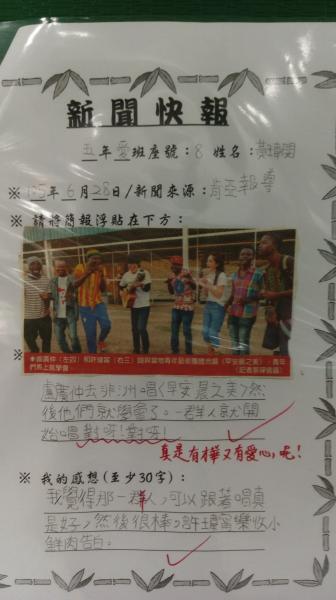 新聞快報
五年愛班座號：8 姓名：
※105年6月28日/新聞來源：肯亞報導
※ 請將簡報浮貼在下方：
盧廣仲（左四）和許瑋甯（右三）
※
盧廣仲去非洲唱《早安晨之美》然
後他們就學會了。一群人就開
始唱對呀！對呀！
真是有棒又有愛心，呢！
※ 我的感想(至少30字)：
我覺得那一群人，可以跟著唱真
是好，然後很棒，許瑋甯樂收小
鮮肉告白。